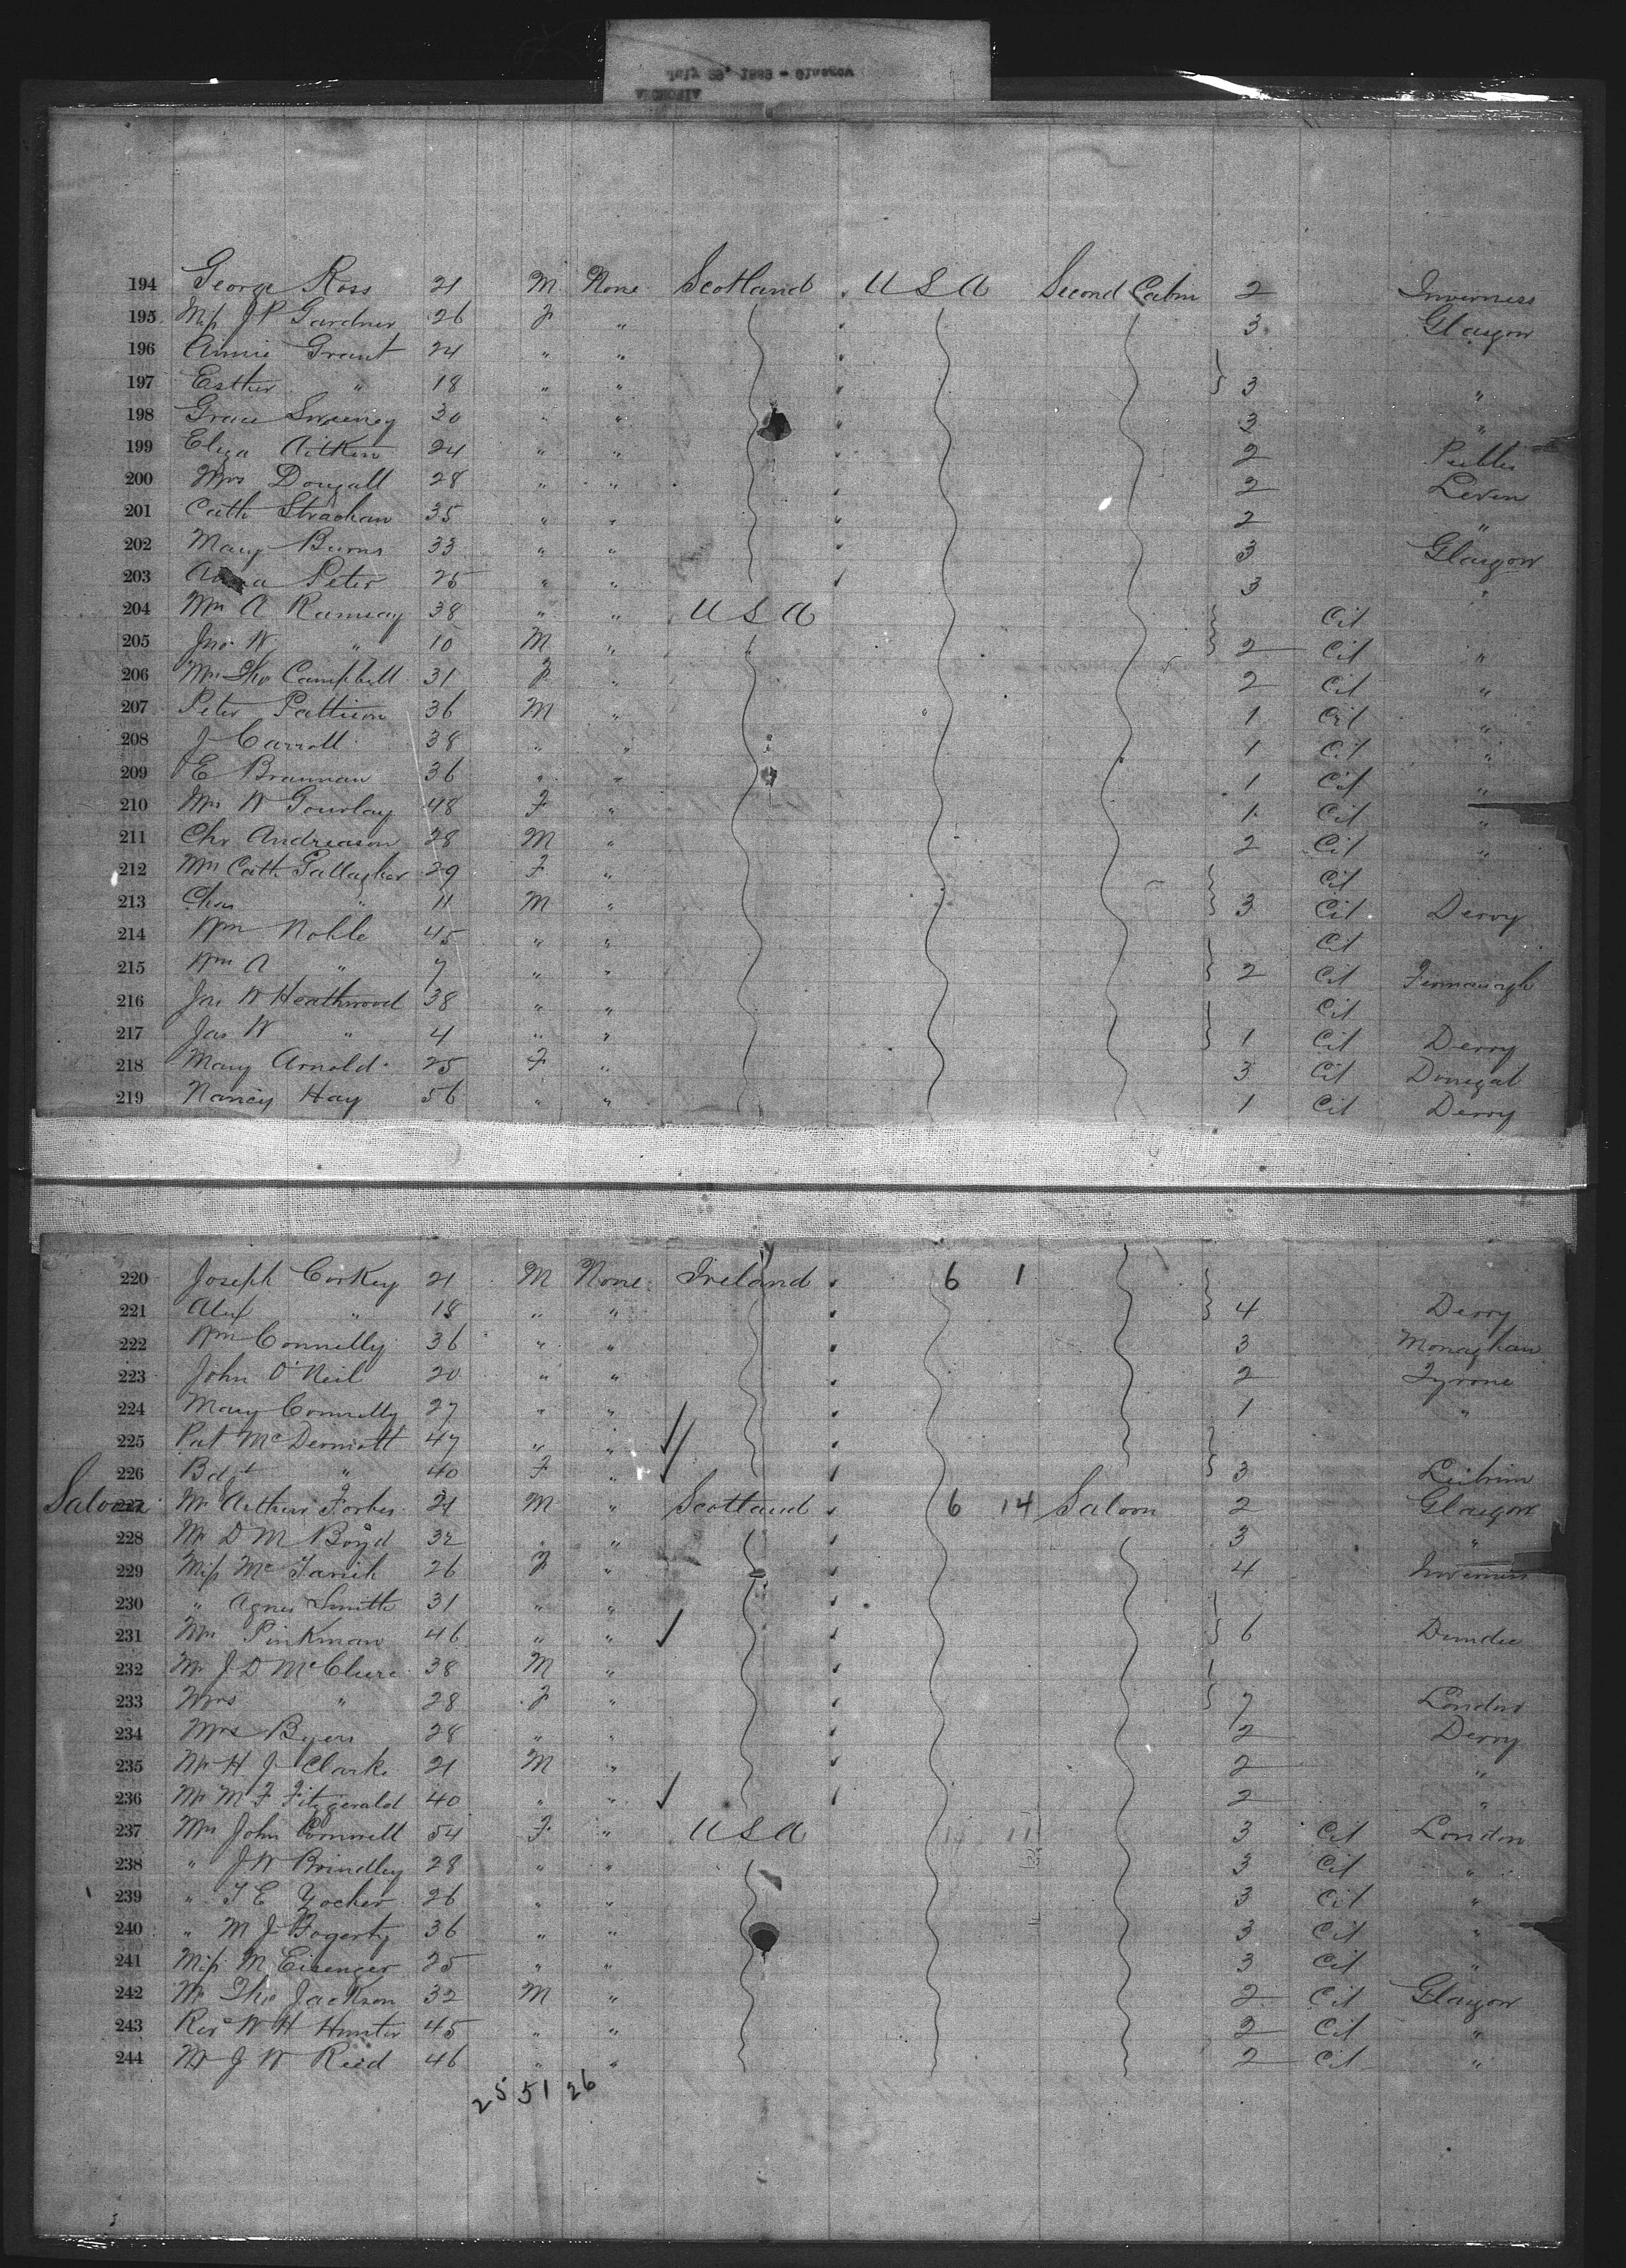 July 29, 1889 - Glasgow
194 George Ross 21 M None Scotland USA Second Cabin 2 Inverness
195 Miss J P Gardner 26 F " 3 Glasgow
196 Annie Grant 24 " "
197 Esther " 18 " " 3 "
198 Grace Sweeney 30 " " 3 "
199 Eliza Aitken 24 " " 2 Peebles
200 Mrs Dougall 28 " " 2 Leven
201 Cath Strachan 35 " " 2 "
202 Mary Burns 33 " " 3 Glasgow
203 Peter 25 " " 3 "
204 Mrs A Ramsay 38 " " USA Cit
205 Jno W " 10 M " 2 Cit "
206 Mrs Tho Campbell 31 F " 2 Cit "
207 Peter Pattison 36 M " 1 Cit "
208 J Carroll 38 " " 1 Cit "
209 E Brannan 36 " " 1 Cit "
210 Mrs W Gourlay 48 F " 1 Cit "
211 Chr Andreason 28 M " 2 Cit "
212 Mrs Cath Gallagher 29 F " Cit
213 Chas " 11 M " 3 Cit Derry
214 Wm Noble 45 " " Cit
215 Wm A " 7 " " 2 Cit Fermanagh
216 Jas W Heathwood 38 " " Cit
217 Jas W " 4 " " 1 Cit Derry
218 Mary Arnold 25 F " 3 Cit Donegal
219 Nancy Hay 56 " " 1 Cit Derry
220 Joseph Corkey 21 M None Ireland 6 1
221 Alex " 18 " " 4 Derry
222 Wm Connelly 36 " " 3 Monaghan
223 John O'Neil 20 " " 2 Tyrone
224 Mary Connelly 27 " " 1 "
225 Pat McDermott 47 " "
226 Bdgt " 40 F " 3 Leitrim
Saloon 227 Mr Arthur Forbes 21 M " Scotland 6 14 Saloon 2 Glasgow
228 Mr D M Boyd 32 " " 3 "
229 Miss Mc 26 F " 4 Inverness
230 " Agnes Smith 31 " "
231 Mrs Pinkman 46 " " 6 Dundee
232 Mr J D McClure 38 M "
233 Mrs " 28 F " 7 London
234 Mrs Byers 28 " " 2 Derry
235 Mr H J Clarke 21 M " 2 "
236 Mr M F Fitzgerald 40 " " 2 "
237 Mrs John Cornwell 54 F " USA 11 3 Cit London
238 " J W Brindley 28 " " 3 Cit "
239 " T E Yocher 26 " " 3 Cit "
240 " M J Fogerty 36 " " 3 Cit "
241 Miss M Eisenger 25 " " 3 Cit "
242 Mr Tho Jackson 32 M " 2 Cit Glasgow
243 Revd W H Hunter 45 " " 2 Cit "
244 Mr J W Reid 46 " " 2 Cit "
25 51 26